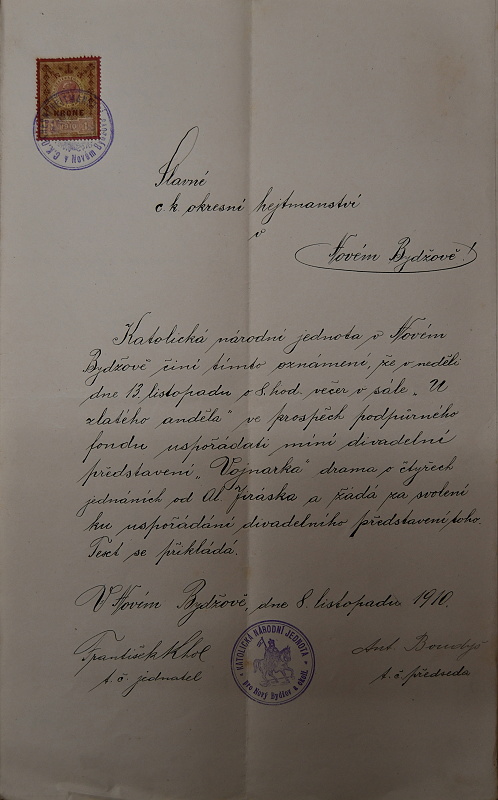 1
KRONE
1910
v Novém
Slavné
c. k. okresní hejtmanství
v
Novém Bydžově!
Katolická národní jednota v Novém
Bydžově činí tímto oznámení, že v neděli
dne 13. listopadu o 8. hod. večer v sále „U
zlatého anděla“ ve prospěch podpůrného
fondu uspořádati míní divadelní
představení „Vojnarka“ drama o čtyřech
jednáních od Al. Jiráska a žádá za svolení
ku uspořádání divadelního představení toho.
Text se přikládá.
V Novém Bydžově, dne 8. listopadu 1910.
František Khol
t. č. jednatel
KATOLICKÁ NÁRODNÍ JEDNOTA
pro Nový Bydžov a okolí
Ant.
t. č. předseda